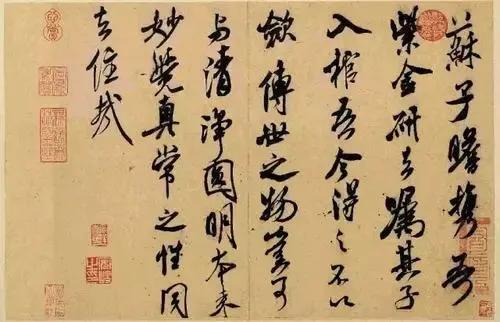 蘇子瞻攜吾
紫金研去囑其子
入棺吾今得之不以
斂傳世之物豈可
與清淨圓明本來
妙覺真常之性同
去住哉